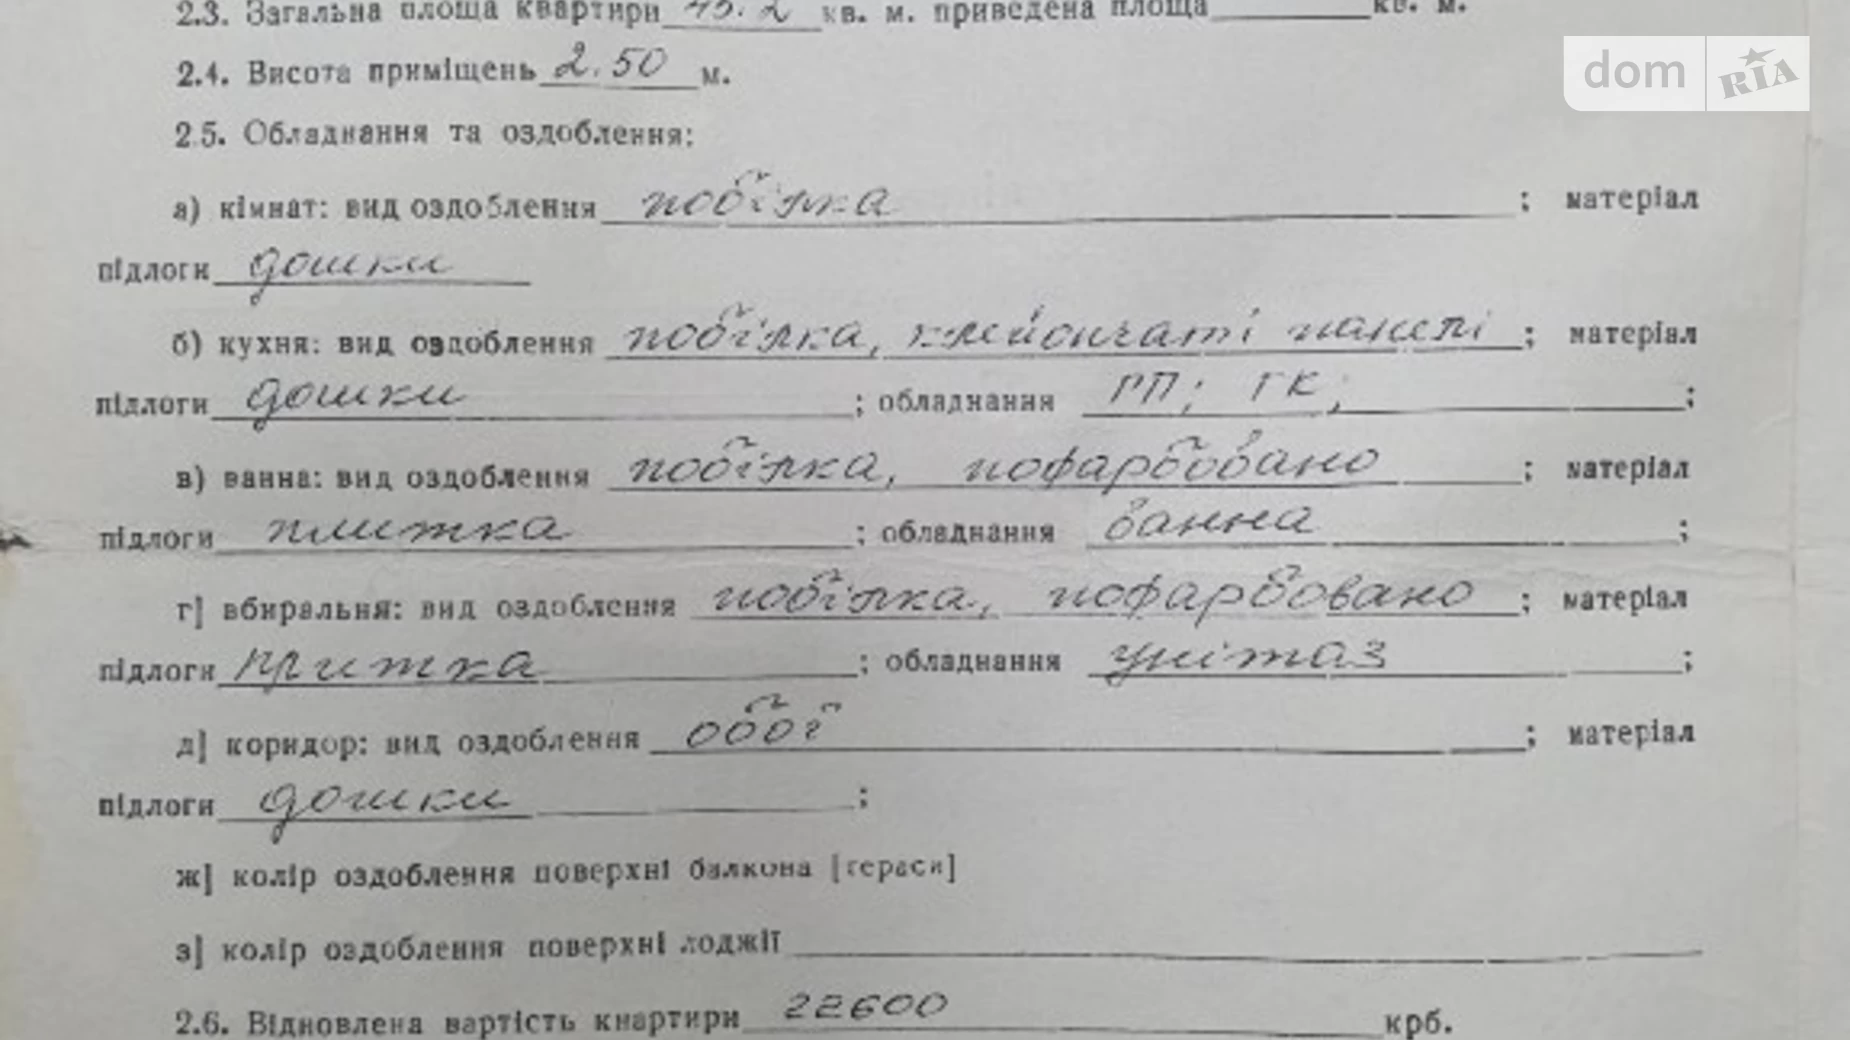 2.3. Загальна площа квартири 45.2 кв. м. приведена площа кв. м.
dom RIA
2.4. Висота приміщень 2.50 м.
2.5. Обладнання та оздоблення:
а) кімнат: вид оздоблення побілка ; матеріал
підлоги дошки
б) кухня: вид оздоблення побілка, клейончаті панелі ; матеріал
підлоги дошки ; обладнання ГП; ГК; ;
в) ванна: вид оздоблення побілка, пофарбовано ; матеріал
підлоги плитка ; обладнання ванна ;
г] вбиральня: вид оздоблення побілка, пофарбовано ; матеріал
підлоги плитка ; обладнання унітаз ;
д] коридор: вид оздоблення обої ; матеріал
підлоги дошки ;
ж] колір оздоблення поверхні балкона [тераси]
з] колір оздоблення поверхні лоджії
2.6. Відновлена вартість квартири 22600 крб.